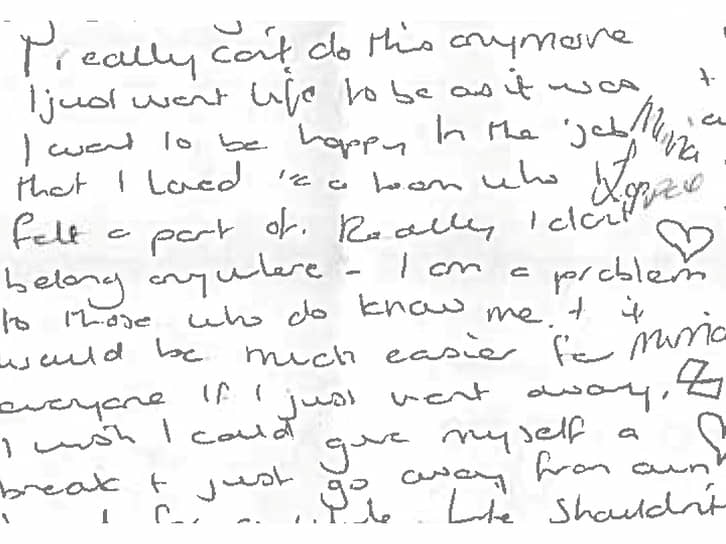 I really can't do this anymore
I just want life to be as it was +
I want to be happy in the job
that I loved a team who I
felt a part of. Really I don't
belong anywhere - I am a problem
to those who do know me. + it
would be much easier for
everyone if I just went away.
I wish I could give myself a
break + just go away from
Life shouldn't